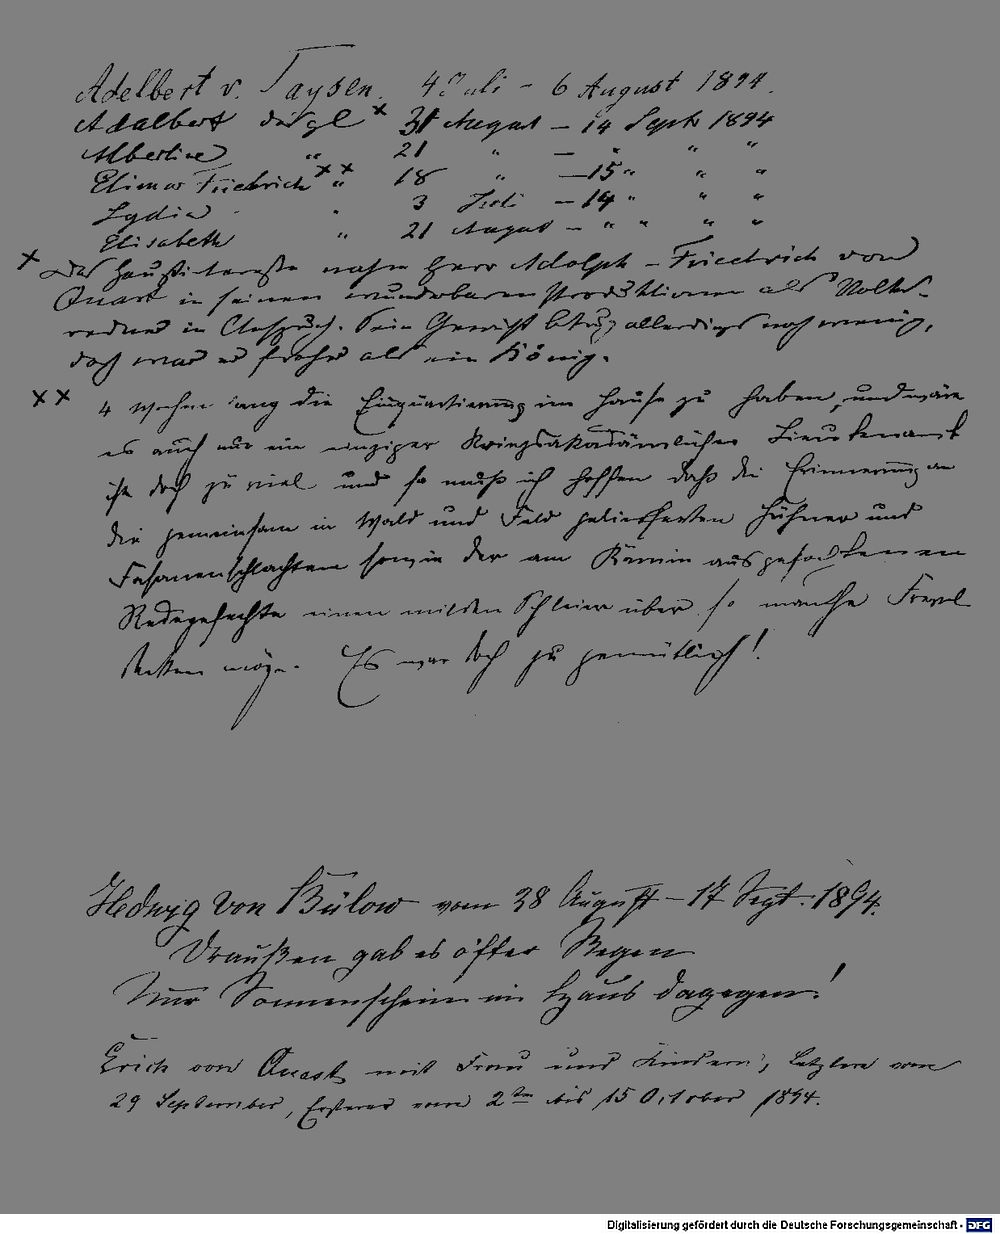 Adelbert v. Taysen. 4 Juli - 6 August 1894.
Adalbert dsgl × 31 August - 14 Septb 1894
Albertine " 21 " - " " "
Elimar Friedrich ×× " 18 " - 15 " " "
Lydia " 3 Juli - 14 " " "
Elisabeth " 21 August - " " " "
× Das Hausinteresse nahm Herr Adolph-Friedrich von
Quast in seinen wunderbaren Produktionen als Volks-
redner in Anspruch. Sein Gewicht betrug allerdings noch wenig,
doch war er froher als ein König.
×× 4 Wochen lang die Einquartierung im Hause zu haben, und wäre
es auch nur ein einziger Kriegsakademischer Lieutenant
ist doch zu viel und so muß ich hoffen daß die Erinnerung an
die gemeinsam in Wald und Feld gelieferten Hühner und
Fasanenschlachten sowie der am Kamin ausgefochtenen
Redegefechte einen milden Schleier über so manche Frevel
decken möge. Es war doch zu gemütlich!
Hedwig von Bülow vom 28 August - 17 Sept. 1894.
Draußen gab es öfter Regen
Nur Sonnenschein im Haus dagegen!
Erich von Quast mit Frau und Kindern, Letztere vom
29 September, Ersterer vom 2ten bis 15 October 1894.